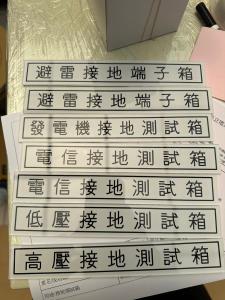 避雷接地端子箱
避雷接地端子箱
發電機接地測試箱
電信接地測試箱
電信接地測試箱
低壓接地測試箱
高壓接地測試箱